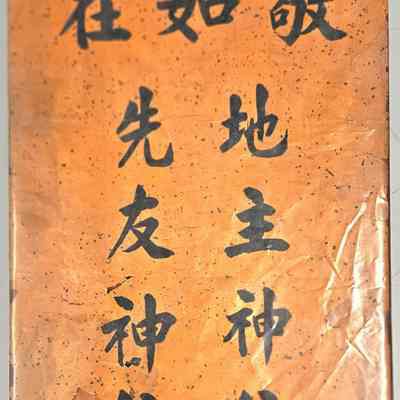 敬如在
地主神
先友神